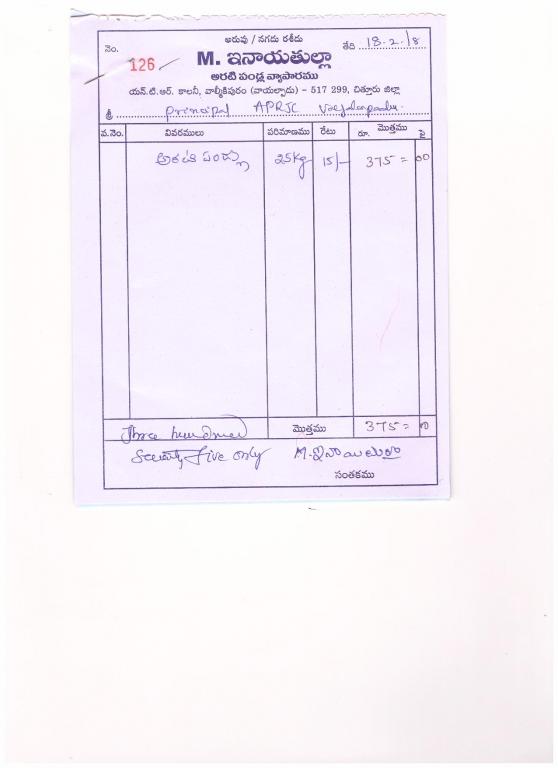 అరువు / నగదు రశీదు
నెం. 126 తేది 18-2-18
M. ఇనాయతుల్లా
అరటి పండ్ల వ్యాపారము
యన్.టి.ఆర్. కాలనీ, వాల్మీకిపురం (వాయల్పాడు) - 517 299, చిత్తూరు జిల్లా
శ్రీ Principal APRJC
వ.నెం. వివరములు పరిమాణము రేటు మొత్తము రూ. పై
అరటి పండ్లు 25Kg 15/- 375 = 00
Three hundred మొత్తము 375 = 00
Seventy Five only M. ఇనాయతుల్లా
సంతకము